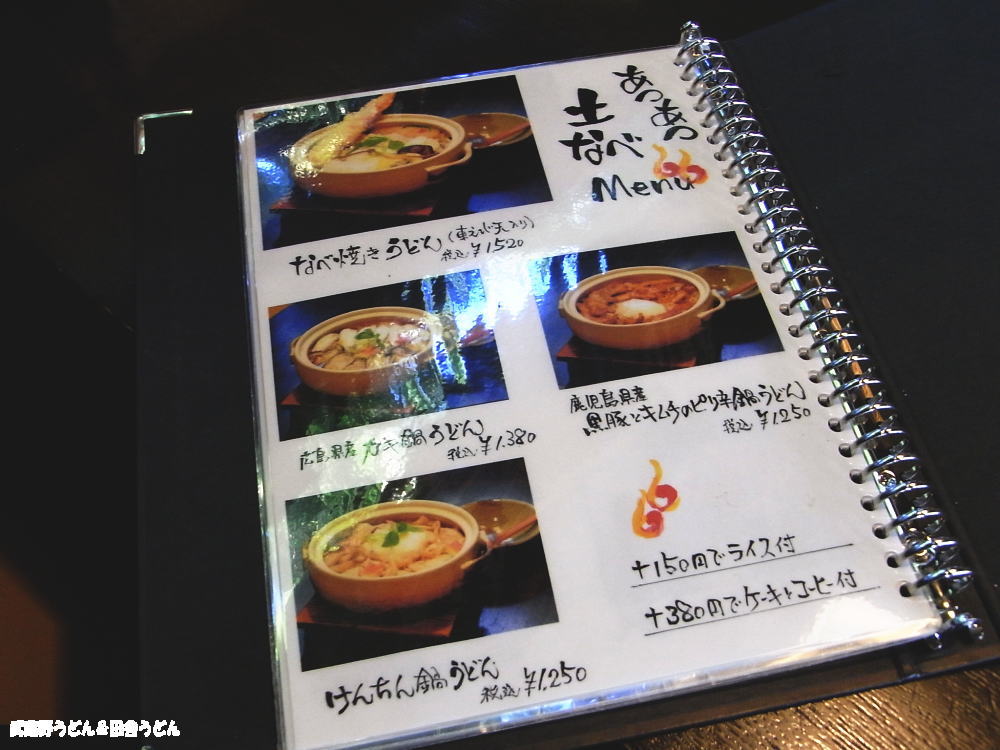 あつあつ
土なべ
Menu
なべ焼きうどん(車えび天入り)
税込¥1520
広島県産カキ鍋うどん
税込¥1.380
鹿児島県産
黒豚とキムチのピリ辛鍋うどん
税込¥1.250
けんちん鍋うどん
税込¥1.250
+150円でライス付
+380円でケーキとコーヒー付
武蔵野うどん&田舎うどん